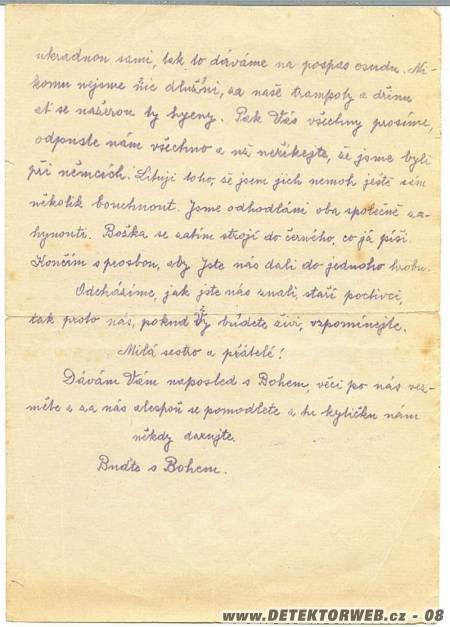 ukradnou sami, tak to dáváme na pospas osudu. Ni-
komu nejsme nic dlužni, za naše trampoty a dřinu
ať se nažerou ty hyeny. Pak Vás všechny prosíme,
odpusťte nám všechno a než neříkejte, že jsme byli
při němcích. Lituji toho, že jsem jich nemoh ještě sám
několik bouchnout. Jsme odhodláni oba společně za-
hynouti. Božka se zatím strojí do černého, co já píši.
Končím s prosbou, aby jste nás dali do jednoho hrobu.
Odcházíme, jak jste nás znali, staří poctivci,
tak proto nás, pokud Vy budete živi, vzpomínejte.
Milá sestro a přátelé!
Dávám Vám naposled s Bohem, věci po nás vez-
měte a za nás alespoň se pomodlete a tu kytičku nám
někdy darujte.
Buďte s Bohem.
www.DETEKTORWEB.cz - 08